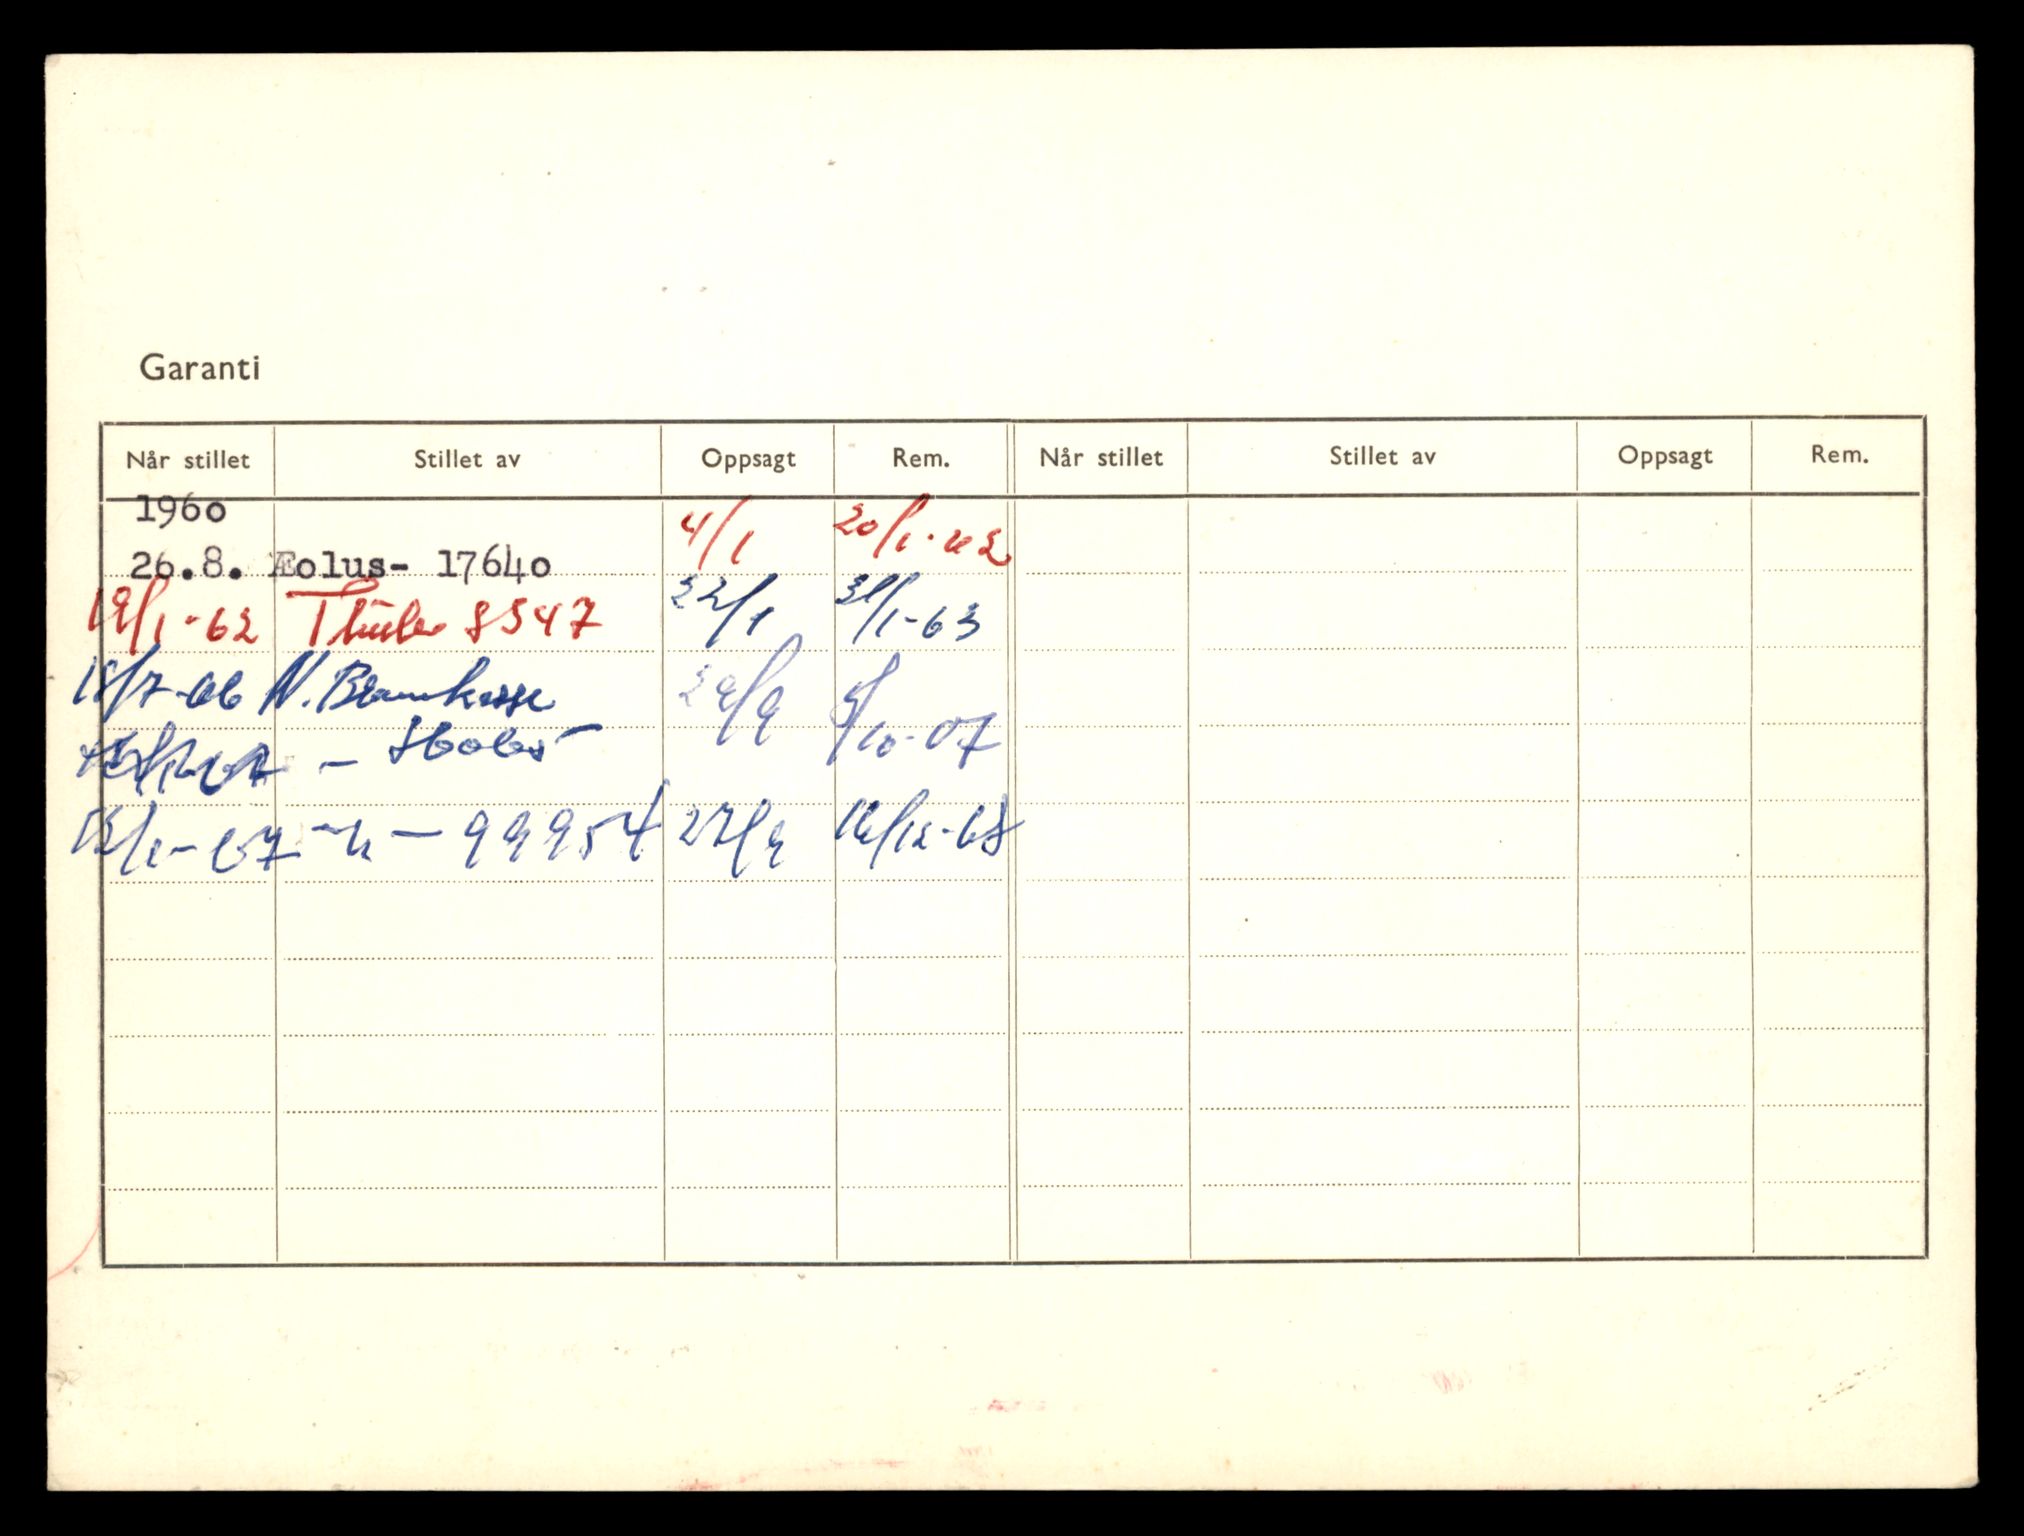 Garanti
Når stillet Stillet av Oppsagt Rem. Når stillet Stillet av Oppsagt Rem.
1960
4/1 20/1-62
26.8. Æolus- 17640
19/1-62 Thule 8547 22/1 31/1-63
18/7-66 N. Brannkasse 29/9 5/10-67
15/1-67 -"- 99954 27/9 16/12-68